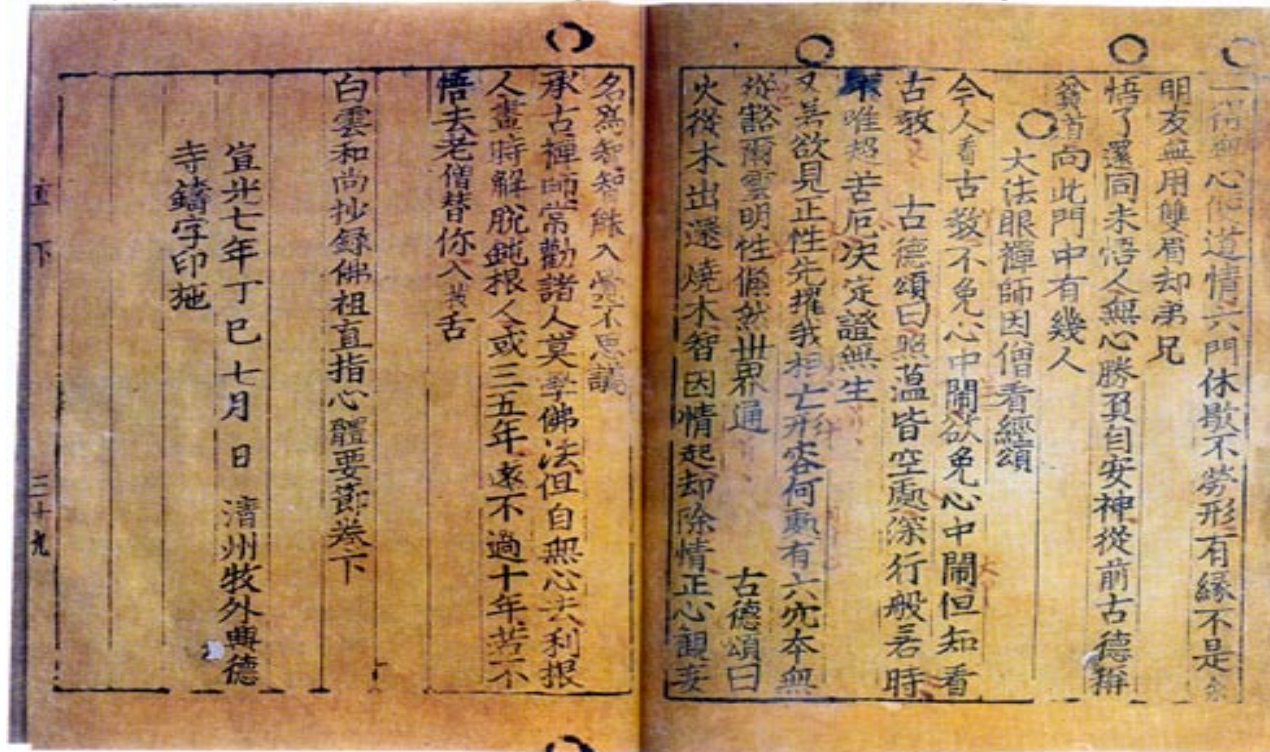 一得無心便道情六門休歇不勞形有緣不是余
朋友無用雙眉却弟兄
悟了還同未悟人無心勝負自安神從前古德稱
貧道向此門中有幾人
大法眼禪師因僧看經頌
今人看古教不免心中鬧欲免心中鬧但知看
古教 古德頌曰照蘊皆空處深行般若時
唯超苦厄決定證無生
又若欲見正性先摧我相亡形容何處有六穴本無
縱豁爾靈明性翛然世界通 古德頌曰
火從木出還燒木智因情起却除情正心觀妄
名爲智智能入 不思議
承古禪師常勸諸人莫學佛法但自無心去利根
人晝時解脫鈍根人或三五年遠不過十年若不
悟去老僧替你入 舌
白雲和尚抄錄佛祖直指心體要節卷下
宣光七年丁巳七月 日 清州牧外興德
寺鑄字印施
直 下 三十九